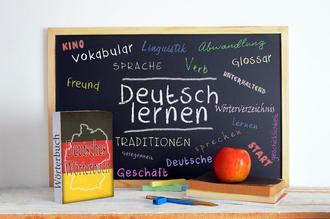 KINO
Vokabular
Linguistik
Abwandlung
SPRACHE
Verb
Glossar
Freund
UNTERHALTEND
Deutsch
lernen
Wörterverzeichnis
lernen
TRADITIONEN
sprechen
Gelegenheit
Deutsche
START
Geschäft
Geschicklichkeit
Wörterbuch
Deutsches
Wörterbuch